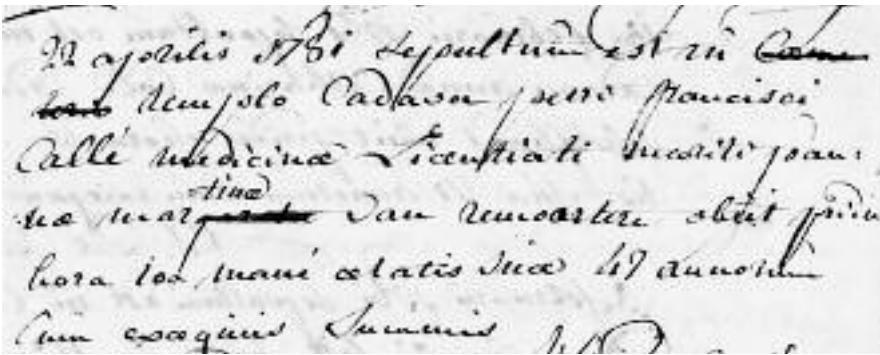 22 aprilis 1781 sepultum est in
templo Cadaver petri francisci
Callé medicinæ Licentiati mariti joan
næ martinæ van remoortere obiit pridie
hora 10a mané ætatis suæ 47 annorum
Cum exequiis Summis